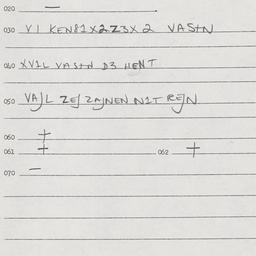 020 —
030 VI KEN81X2Z3X2 VASTN
040 XV1L VASTN D3 HENT
050 VAJL ZEJ ZAJNEN NIT REJN
060 +
061 + 062 +
070 —